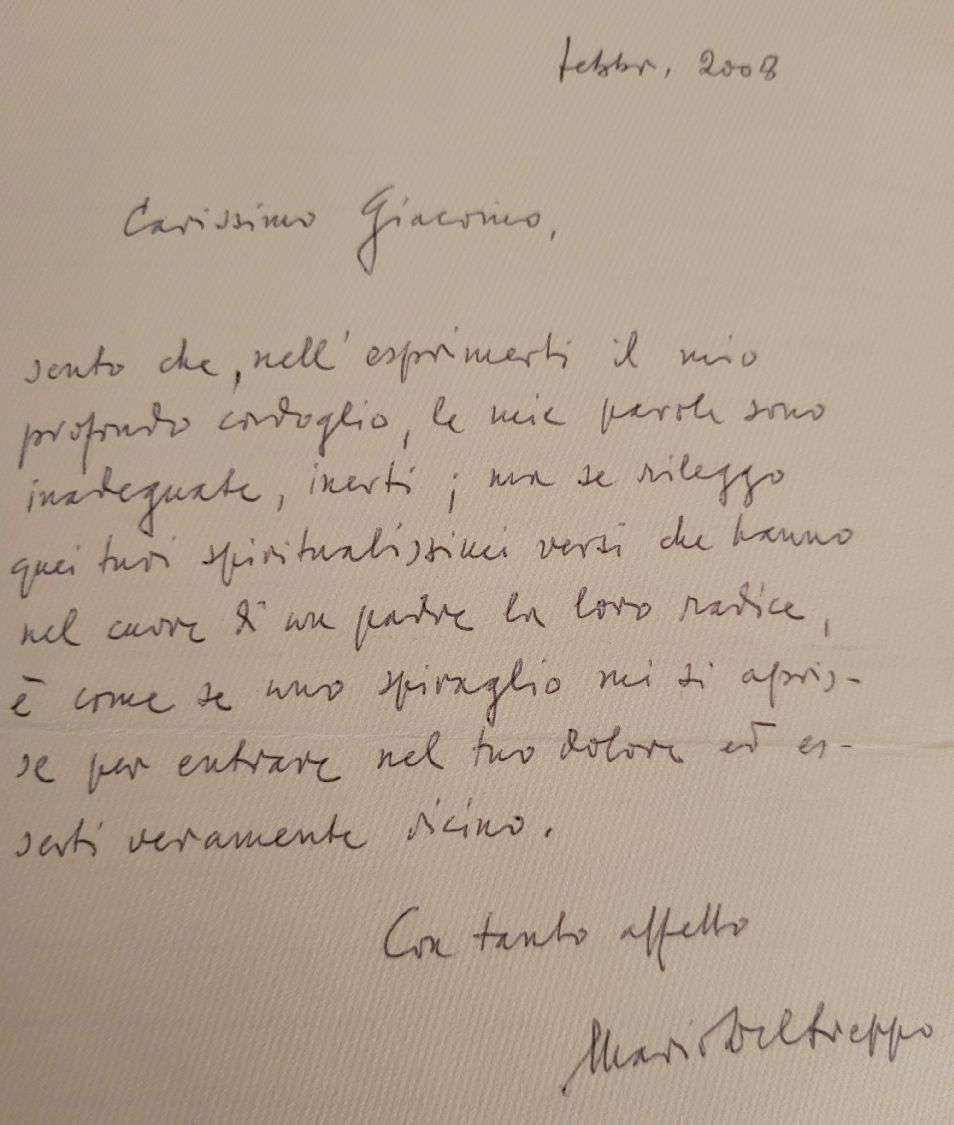 febbr. 2008
Carissimo Giacomo,
sento che, nell'esprimerti il mio
profondo cordoglio, le mie parole sono
inadeguate, inerti; ma se rileggo
quei tuoi spiritualissimi versi che hanno
nel cuore di un padre la loro radice,
è come se uno spiraglio mi si apris-
se per entrare nel tuo dolore ed es-
serti veramente vicino.
Con tanto affetto
Mario Del Treppo